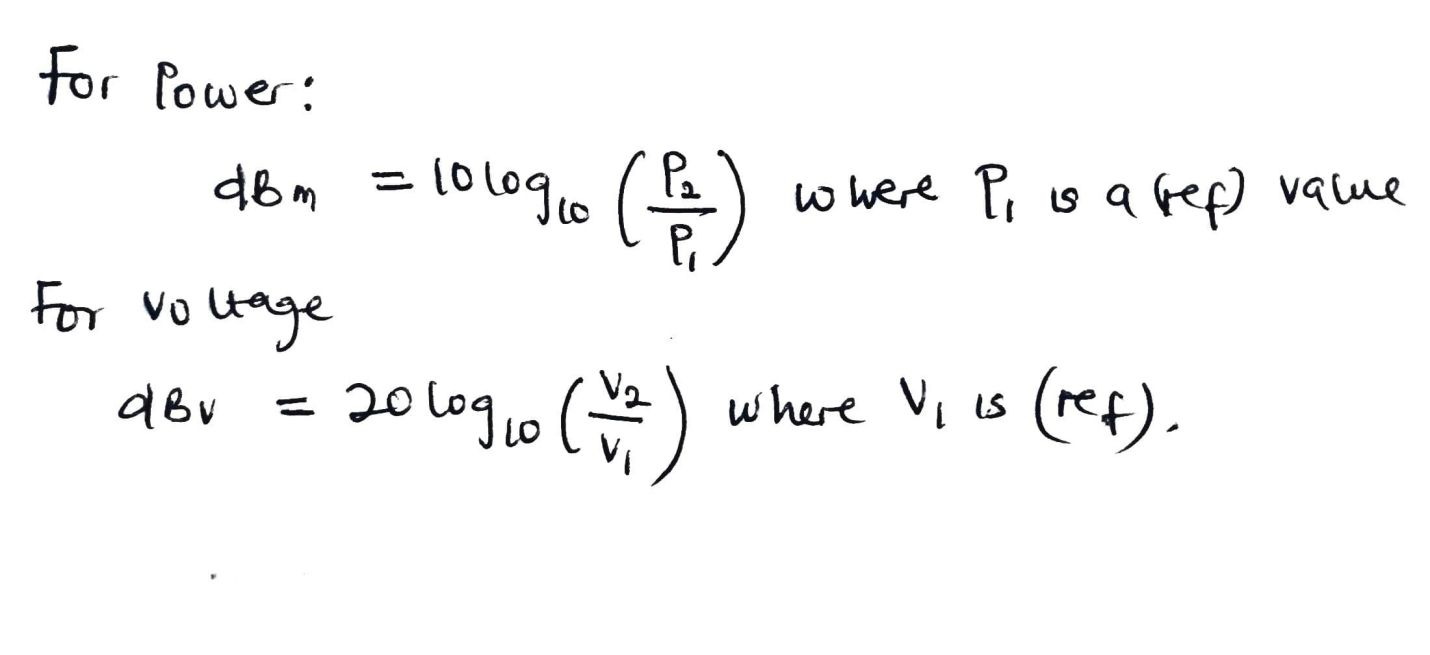 For Power:
dBm = 10 log₁₀ (P₂/P₁) where P₁ is a (ref) value
For voltage
dBv = 20 log₁₀ (V₂/V₁) where V₁ is (ref).